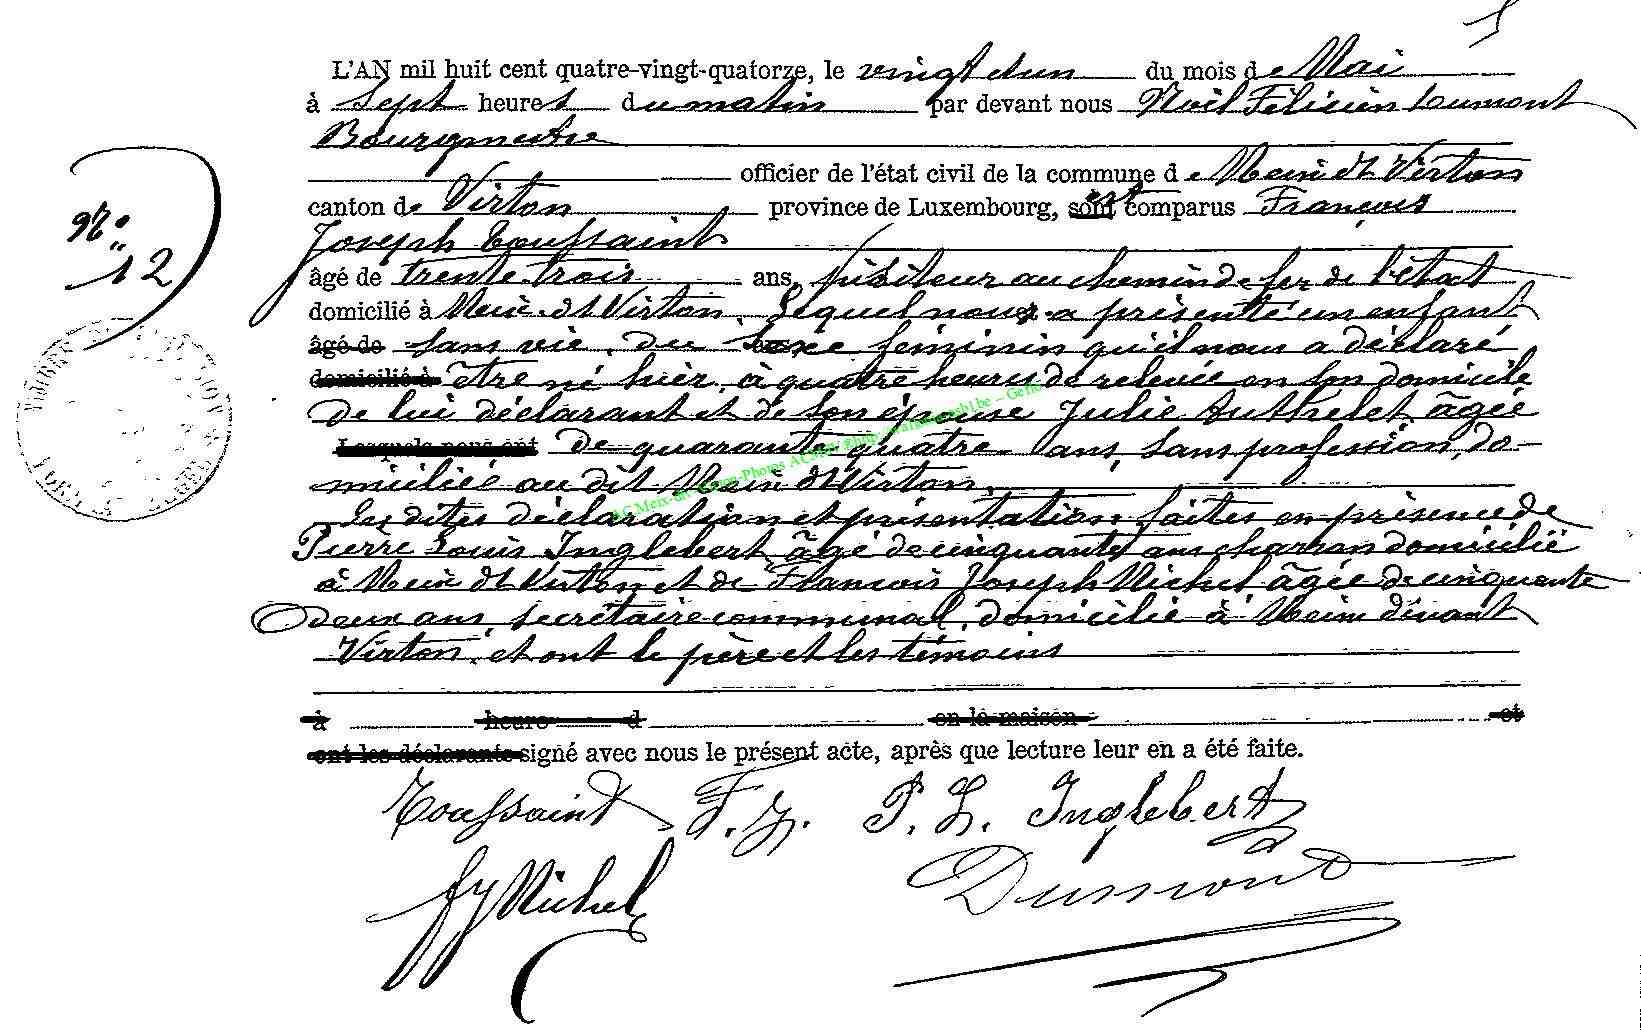 L'AN mil huit cent quatre-vingt-quatorze, le vingt et un du mois de Mai
à Sept heures du matin par devant nous Noël Félicien Dumont
Bourgmestre
officier de l'état civil de la commune de Meix dt Virton
canton de Virton province de Luxembourg, sont est comparus François
Joseph Toussaint
âgé de trente trois ans, visiteur au chemin de fer de l'état
domicilié à Meix-dt Virton. Lequel nous a présenté un enfant
âgé de sans vie, du Sexe féminin qu'il nous a déclaré
domicilié à être né hier, à quatre heures de relevée en son domicile
de lui déclarant et de son épouse Julie Authelet, âgée
Lesquels nous ont de quarante quatre ans, sans profession, do-
miciliée au dit Meix dt Virton.
Les dites déclaration et présentation faites en présence de
Pierre Louis Inglebert, âgé de cinquante ans charron domicilié
à Meix dt Virton et de François Joseph Michel, âgée de cinquante
deux ans, secrétaire communal, domicilié à Meix devant
Virton, et ont le père et les témoins
à heure d en la maison et
ont les déclarants signé avec nous le présent acte, après que lecture leur en a été faite.
N°
12
Toussaint F. J. P. L. Inglebert
fJ Michel Dumont